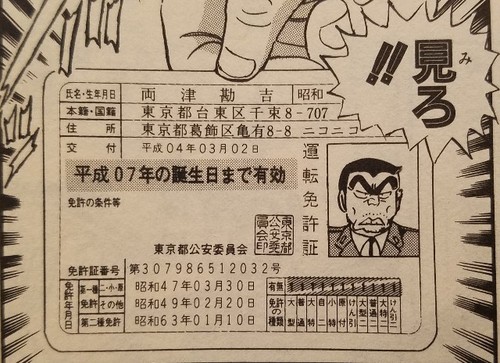 見ろ!!
み
氏名・生年月日 両津勘吉 昭和
本籍・国籍 東京都台東区千束8-707
住所 東京都葛飾区亀有8-8 ニコニコ
交付 平成04年03月02日
平成07年の誕生日まで有効
免許の条件等
運転免許証
東京都公安委員会
東京都公安委員会印
免許証番号 第307986512032号
免許年月日
第一種二・小・原 昭和47年03月30日
免許その他 昭和49年02月20日
第二種免許 昭和63年01月10日
有無
免許の種類 大型 普通 大特 自二 小特 原付 けん引 大型二 普通二 大特二 けん引二